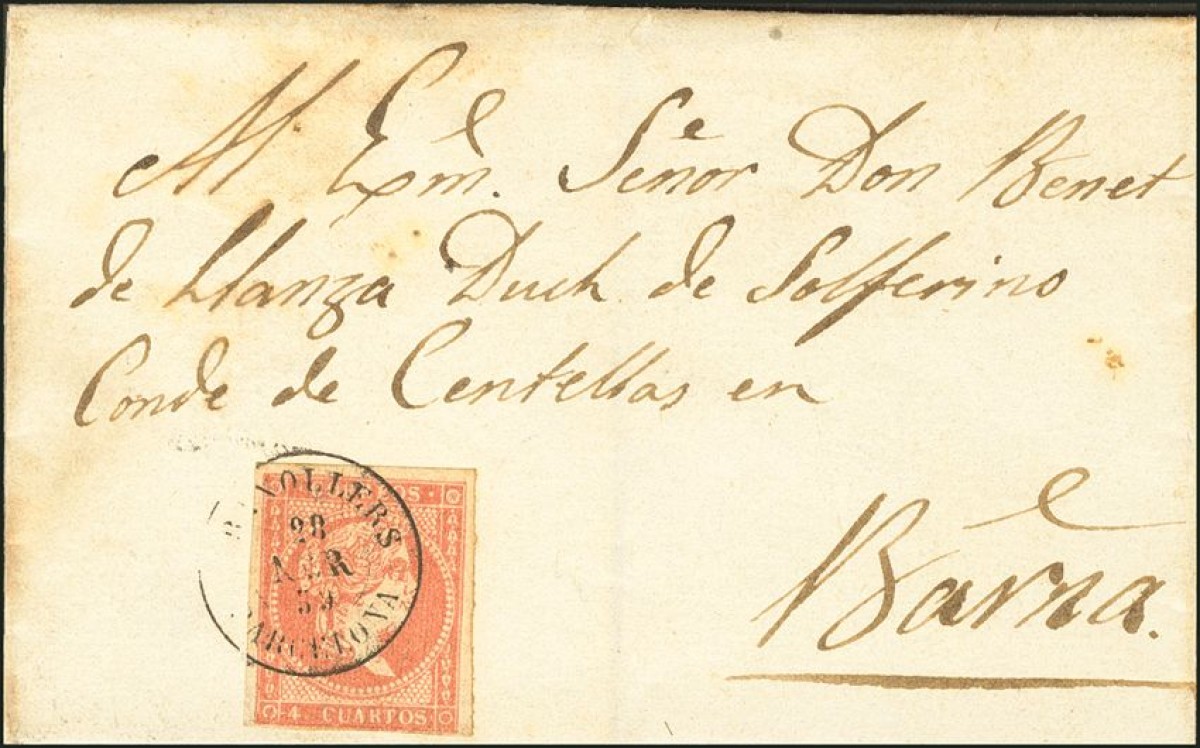 Al Exm̃. Señor Don Benet
de Llanza Duch de Solferino
Conde de Centellas en
Barña.
GRANOLLERS
28
ABR
59
BARCELONA
4 CUARTOS